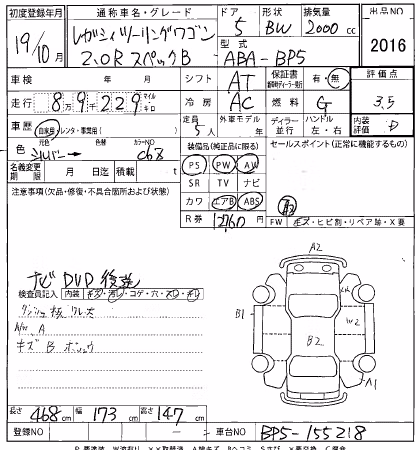 初度登録年月 通称車名・グレード ドア 形状 排気量 出品NO
19/10 レガシィツーリングワゴン 5 BW 2000 cc 2016
2.0R スペックB 型式 ABA-BP5
車検 年 月 シフト AT 保証書 有・無 評価点
走行 8万9千229 マイル キロ 冷房 AC 燃料 G 3.5
車歴 自家用・レンタ・事業用 定員 5人 ディーラー 並行 ハンドル 左・右 内装 D
色 元色 シルバー 色替 カラーNO C68 装備品(純正品に限る) セールスポイント(正常に機能するもの)
名義変更期限 月 日迄 積載 PS PW AW
注意事項(欠品・修復・不具合箇所および状態) SR TV ナビ
カワ エアB ABS
R券 12760 FW キズ・ヒビ割・リペア跡・X要
ナビ DVD 後送
検査員記入 内装 キズ・汚レ・コゲ・穴・スレ・キレ
A2
B1
B2
W2
A1
A/W A
キズ B
長さ 468 cm 幅 173 cm 高さ 147 cm
登録NO 車台NO BP5-155218